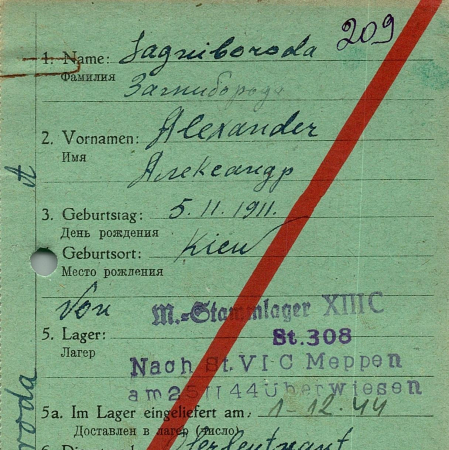 209
1. Name: Sagniboroda
Фамилия Загниборода
2. Vornamen: Alexander
Имя
Александр
3. Geburtstag: 5.11.1911.
День рождения
Geburtsort: Kiew
Место рождения
Von M.-Stammlager XIII C
5. Lager: St. 308
Лагерь
Nach St. VI-C Meppen
am 28 11 44 überwiesen
5a. Im Lager eingeliefert am: 1-12.44
Доставлен в лагерь (число)